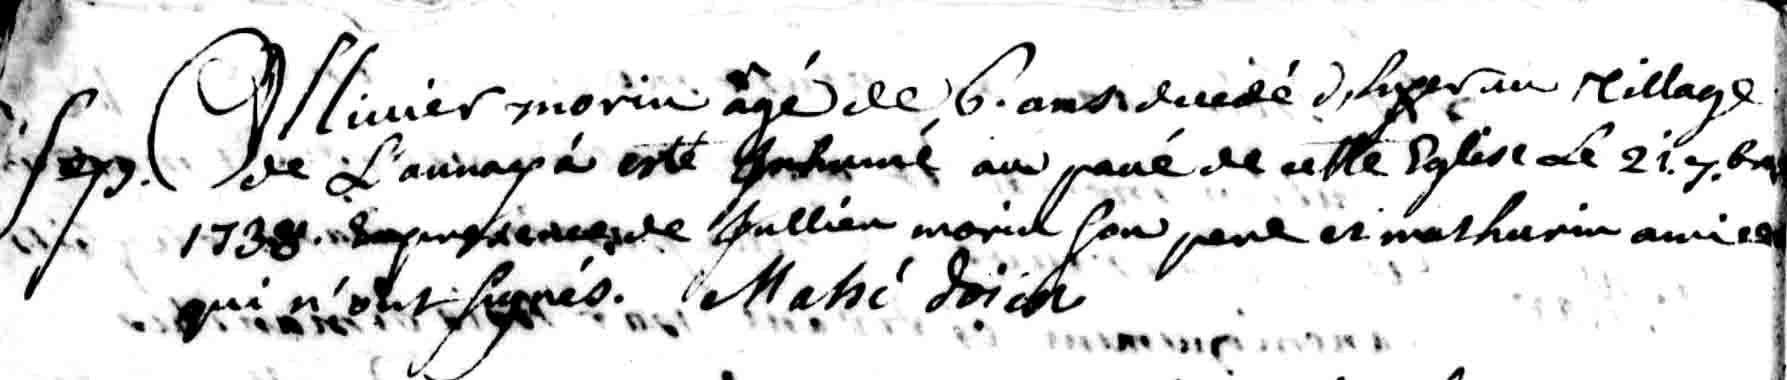 Sep. Ollivier morin âgé de 6. ans decedé d'hyer au village
de Launay á esté Inhumé au pavé de cette Eglise Le 21. 7.bre
1738. En presence de Jullien morin son pere et mathurin
qui n'ont signés. Mahé doien